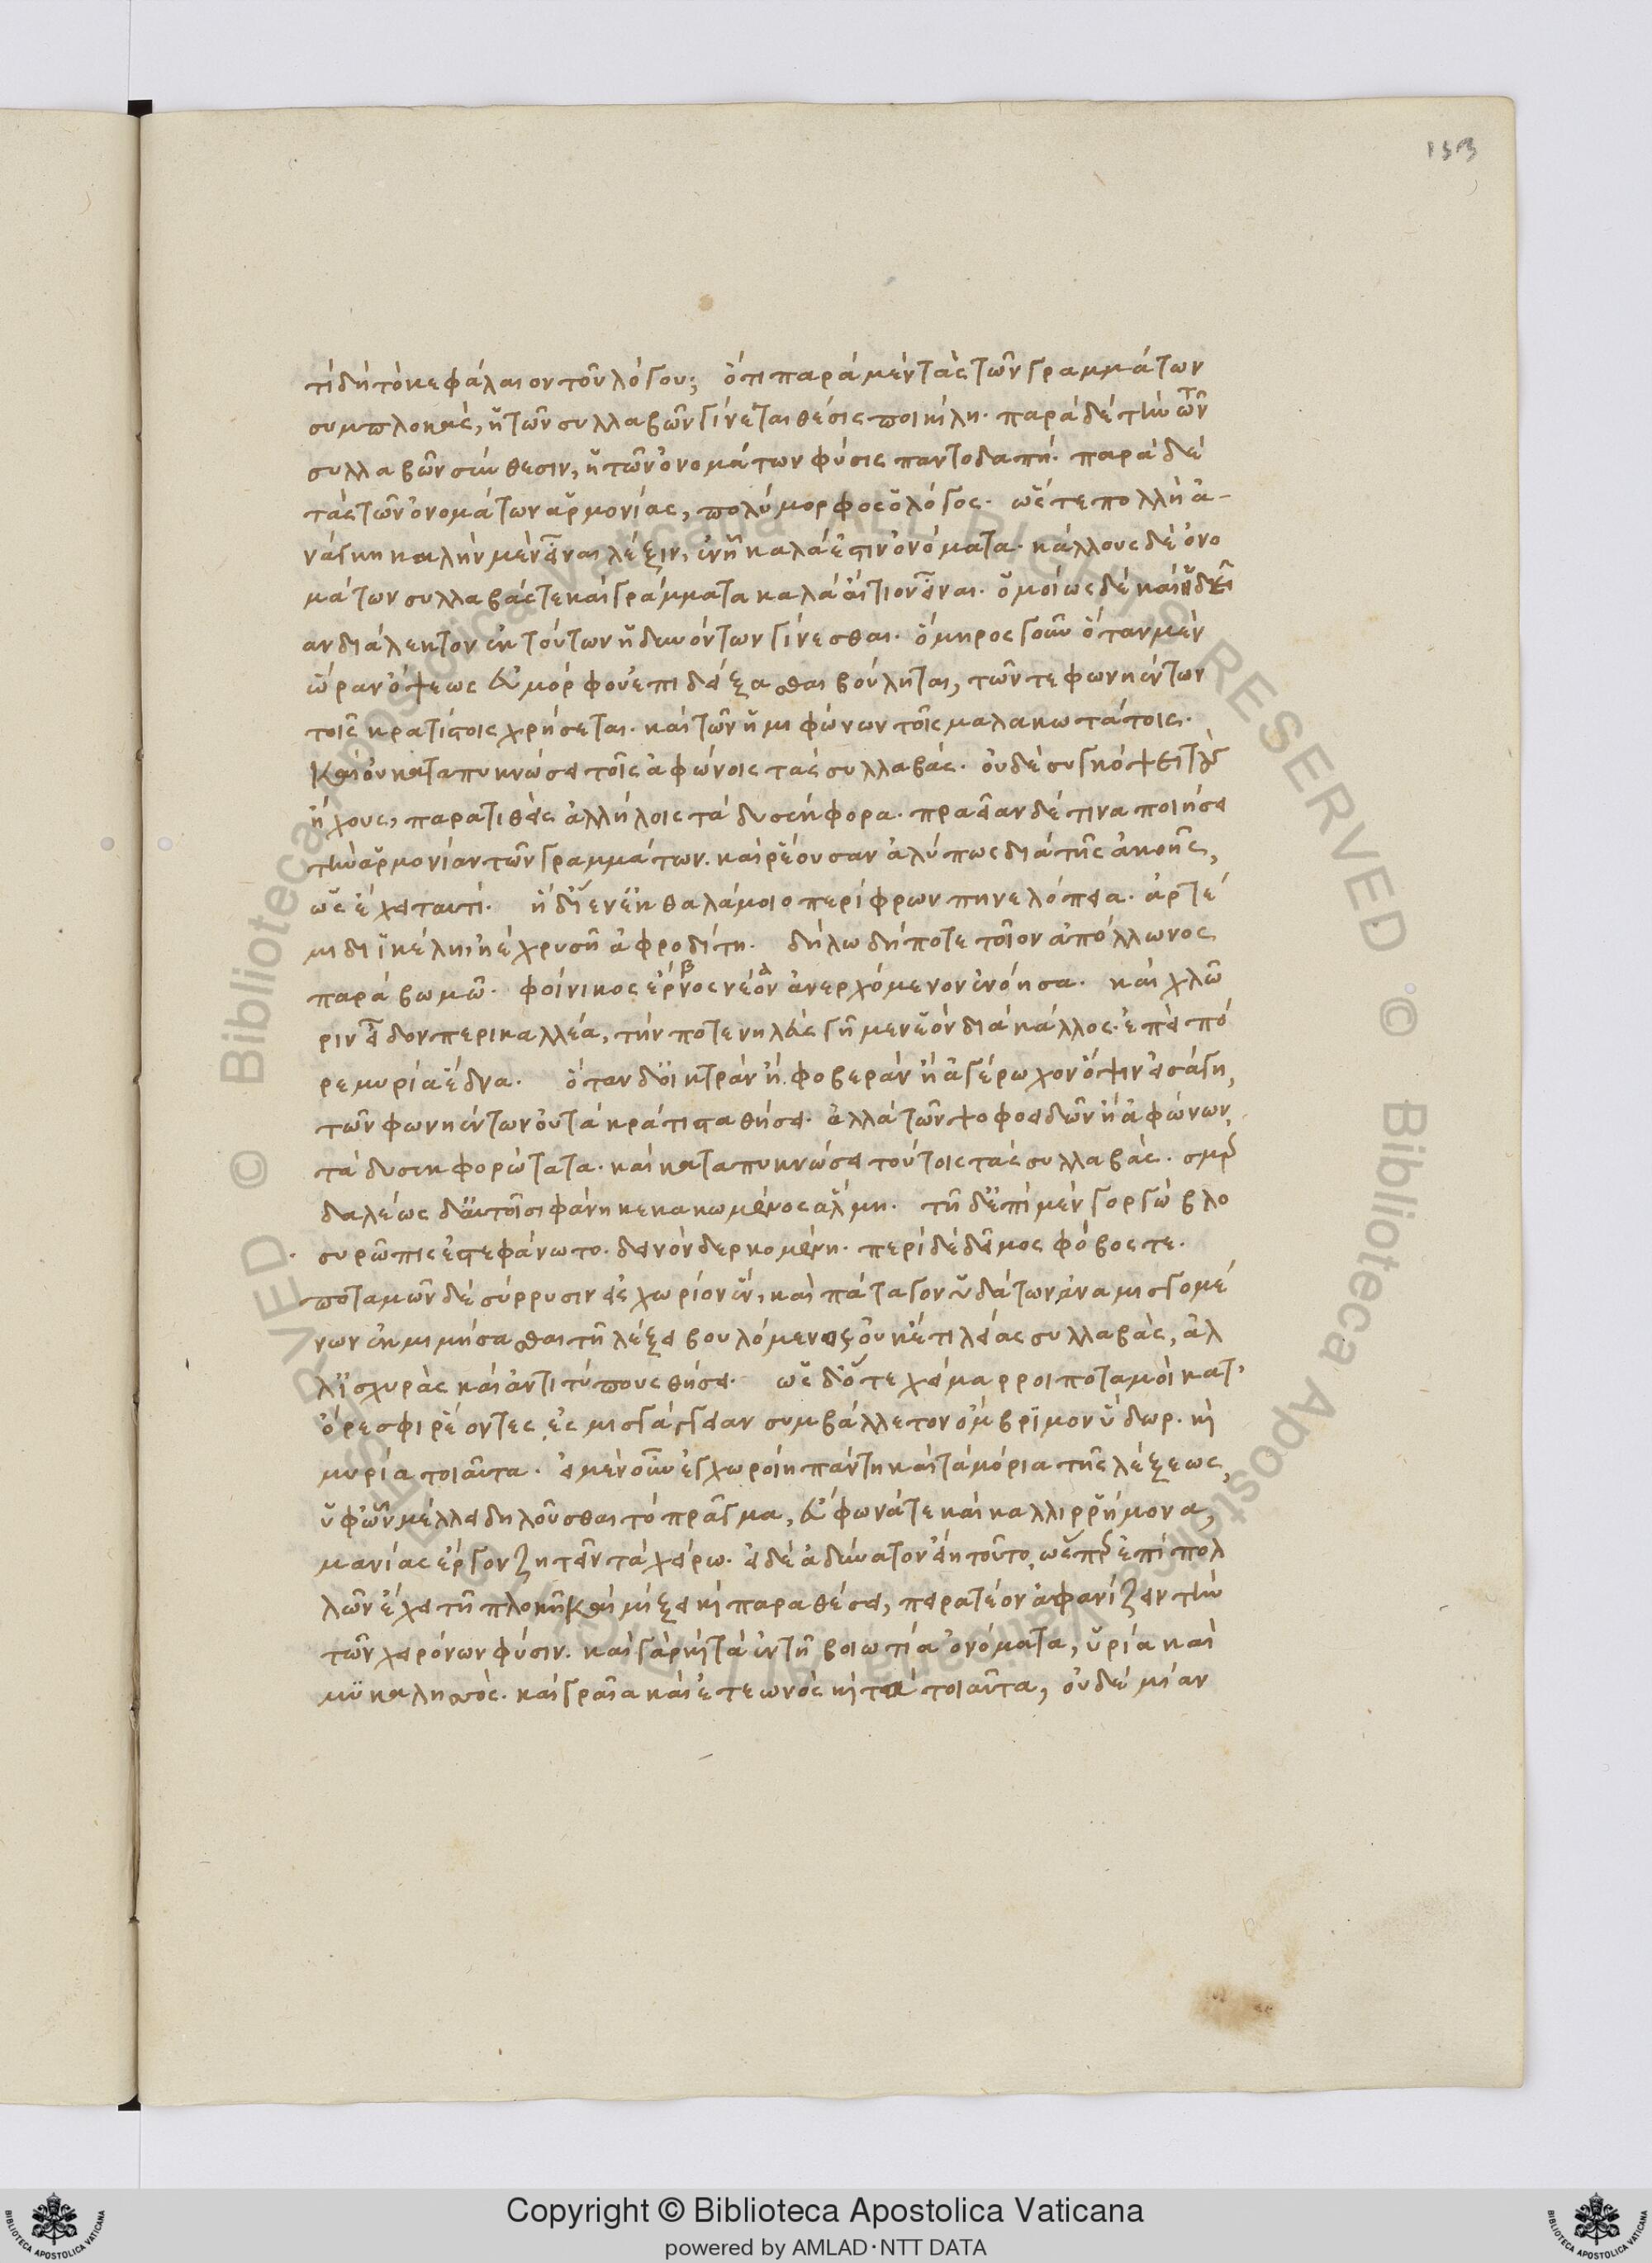 153
τί δὴ τὸ κεφάλαιον τοῦ λόγου; ὅτι παρὰ μὲν τὰς τῶν γραμμάτων
συμπλοκὰς, ἡ τῶν συλλαβῶν γίνεται θέσις ποικίλη. παρὰ δὲ τὴν τῶν
συλλαβῶν σύνθεσιν, ἡ τῶν ὀνομάτων φύσις παντοδαπή. παρὰ δὲ
τὰς τῶν ὀνομάτων ἁρμονίας, πολύμορφος ὁ λόγος. ὥστε πολλὴ ἀ-
νάγκη καλὴν μὲν εἶναι λέξιν, ἐν ᾗ καλά ἐστιν ὀνόματα. κάλλους δὲ ὀνο
μάτων συλλαβάς τε καὶ γράμματα καλὰ αἴτιον εἶναι. ὁμοίως δὲ καὶ ἡδεῖ
αν διάλεκτον ἐκ τούτων ἡδυνόντων γίνεσθαι. ὅμηρος γοῦν ὅταν μὲν
ὥραν ὄψεως εὐμόρφου ἐπιδείξασθαι βούληται, τῶν τε φωνηέντων
τοῖς κρατίστοις χρήσεται. καὶ τῶν ἡμιφώνων τοῖς μαλακωτάτοις.
Καὶ οὐ καταπυκνώσει τοῖς ἀφώνοις τὰς συλλαβάς. οὐδὲ συγκόψει τοὺς
ἤχους, παρατιθεὶς ἀλλήλοις τὰ δυσέκφορα. πραεῖαν δέ τινα ποιήσει
τὴν ἁρμονίαν τῶν γραμμάτων. καὶ ῥέουσαν ἀλύπως διὰ τῆς ἀκοῆς,
ὡς ἔχει ταυτί. ἡ δ' ἴεν ἐκ θαλάμοιο περίφρων πηνελόπεια. ἀρτέ
μιδι ἰκέλη ἠὲ χρυσῆ ἀφροδίτη. δήλω δή ποτε τοῖον ἀπόλλωνος
παρὰ βωμῶ. φοίνικος ἔρνος νέον ἀνερχόμενον ἐνόησα. καὶ χλῶ
ριν εἶδον περικαλλέα, τήν ποτε νηλεὺς γῆμεν ἑὸν διὰ κάλλος. ἐπεὶ πό
ρε μυρία ἕδνα. ὅταν δ' οἰκτρὰν ἢ φοβερὰν ἢ ἀγέρωχον ὄψιν εἰσάγη,
τῶν φωνηέντων οὐ τὰ κράτιστα θήσει. ἀλλὰ τῶν ψοφοειδῶν ἢ ἀφώνων,
τὰ δυσεκφορώτατα. καὶ καταπυκνώσει τούτοις τὰς συλλαβάς. σμερ
δαλέως δ' αὐτοῖσι φάνη κεκακωμένος ἅλμη. τῆ δ' ἐπὶ μὲν γοργὼ βλο
συρῶπις ἐστεφάνωτο. δεινὸν δερκομένη. περὶ δὲ δεῖμος φόβος τε.
ποταμῶν δὲ σύρρυσιν εἰς χωρίον ἓν, καὶ πάταγον ὑδάτων ἀναμισγομέ
νων ἐκμιμήσασθαι τῆ λέξει βουλόμενος οὐκέτι λείας συλλαβὰς, ἀλ
λ' ἰσχυρὰς καὶ ἀντιτύπους θήσει. ὡς δ' ὅτε χείμαρροι ποταμοὶ κατ'
ὄρεσφι ῥέοντες ἐς μισγάγγειαν συμβάλλετον ὄμβριμον ὕδωρ. καὶ
μυρία τοιαῦτα. εἰ μὲν οὖν ἐγχωροίη πάντη καὶ τὰ μόρια τῆς λέξεως,
ὑφ' ὧν μέλλει δηλοῦσθαι τὸ πρᾶγμα, εὔφωνά τε καὶ καλλιρρήμονα,
μανίας ἔργον ζητεῖν τὰ χείρω. εἰ δὲ ἀδύνατον εἴη τοῦτο, ὥσπερ ἐπὶ πολ
λῶν ἔχει τῆ πλοκῆ καὶ μίξει καὶ παραθέσει, πειρατέον ἀφανίζειν τὴν
τῶν χειρόνων φύσιν. καὶ γὰρ καὶ τὰ ἐν τῆ βοιωτία ὀνόματα, ὑρία καὶ
μυκαλησός. καὶ γραῖα καὶ ἐτεωνὸς καὶ τὰ τοιαῦτα, οὐδεμίαν
Copyright © Biblioteca Apostolica Vaticana
powered by AMLAD·NTT DATA